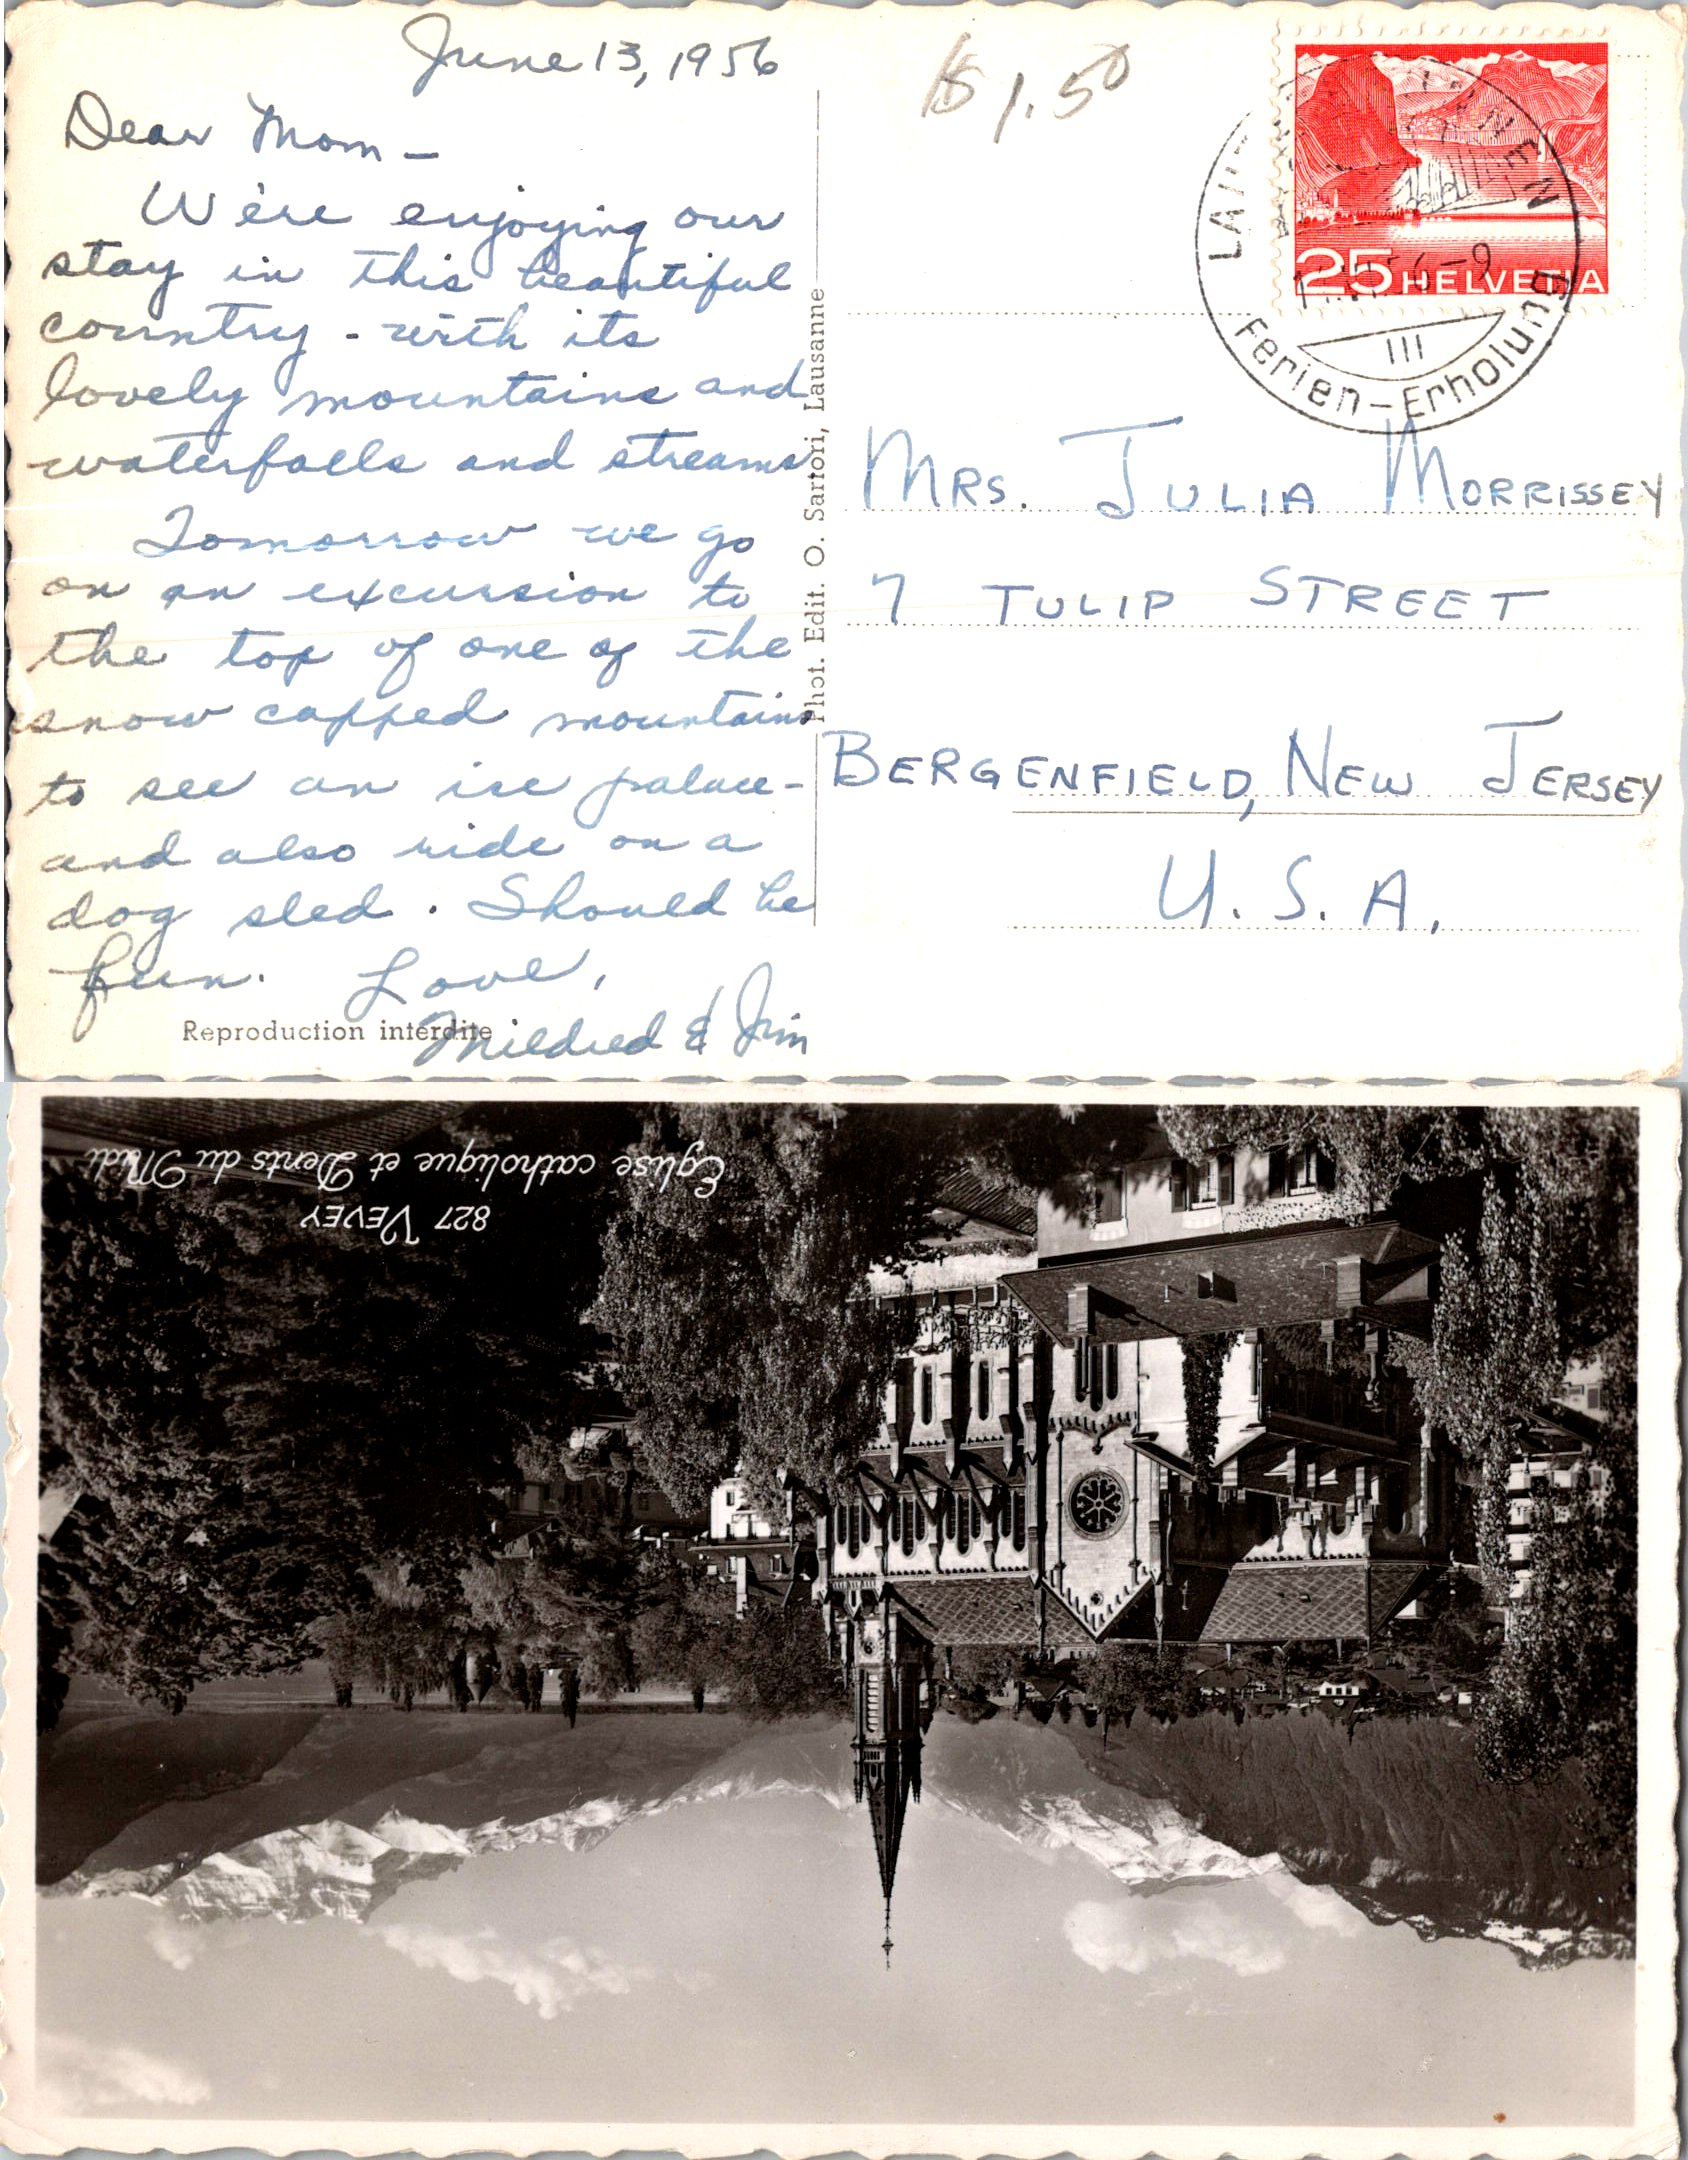 June 13, 1956
Dear Mom —
We're enjoying our
stay in this beautiful
country - with its
lovely mountains and
waterfalls and streams
Tomorrow we go
on an excursion to
the top of one of the
snow capped mountains
to see an ice palace -
and also ride on a
dog sled. Should be
fun. Love,
Mildred & Jim
Reproduction interdite
Phot. Edit. O. Sartori, Lausanne
$1.50
25 HELVETIA
III
Ferien-Erholung
MRS. JULIA MORRISSEY
7 TULIP STREET
BERGENFIELD, NEW JERSEY
U.S.A.
827 VEVEY
Eglise catholique et Dents du Midi